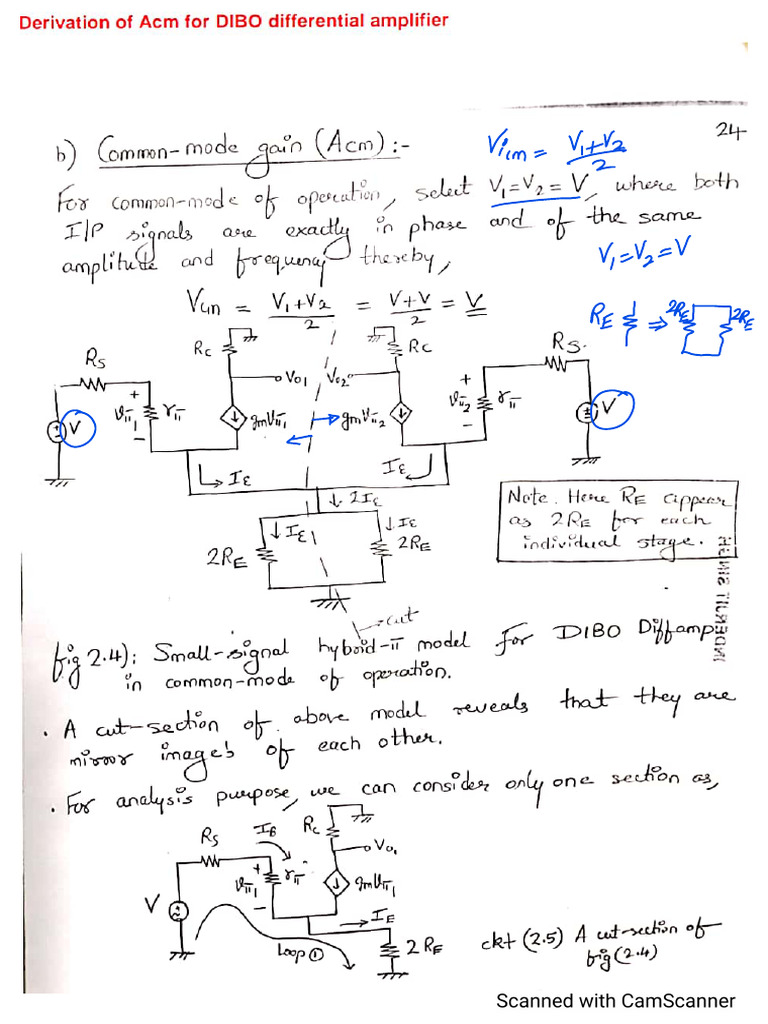 Derivation of Acm for DIBO differential amplifier
24
b) Common-mode gain (Acm) :-
Vicm = V1+V2 / 2
For common-mode of operation, select V1=V2=V, where both
I/P signals are exactly in phase and of the same
amplitude and frequency thereby,
V1=V2=V
= V1+V2 / 2 = V+V / 2 = V
RE ⇒ 2RE 2RE
RC RC
RS RS
Vo1 Vo2
+ +
V + vπ1 rπ gmvπ1 gmvπ2 vπ2 rπ V
- -
IE IE
2IE
IE IE
2RE 2RE
Note. Here RE appear
as 2RE for each
individual stage.
cut
fig 2.4): Small-signal hybrid-π model for DIBO Diffamp
in common-mode of operation.
. A cut-section of above model reveals that they are
mirror images of each other.
. For analysis purpose, we can consider only one section as,
RS IB RC
Vo1
V + vπ1 rπ gmvπ1
-
IE
Loop 1 2RE
ckt (2.5) A cut-section of
fig (2.4)
Scanned with CamScanner